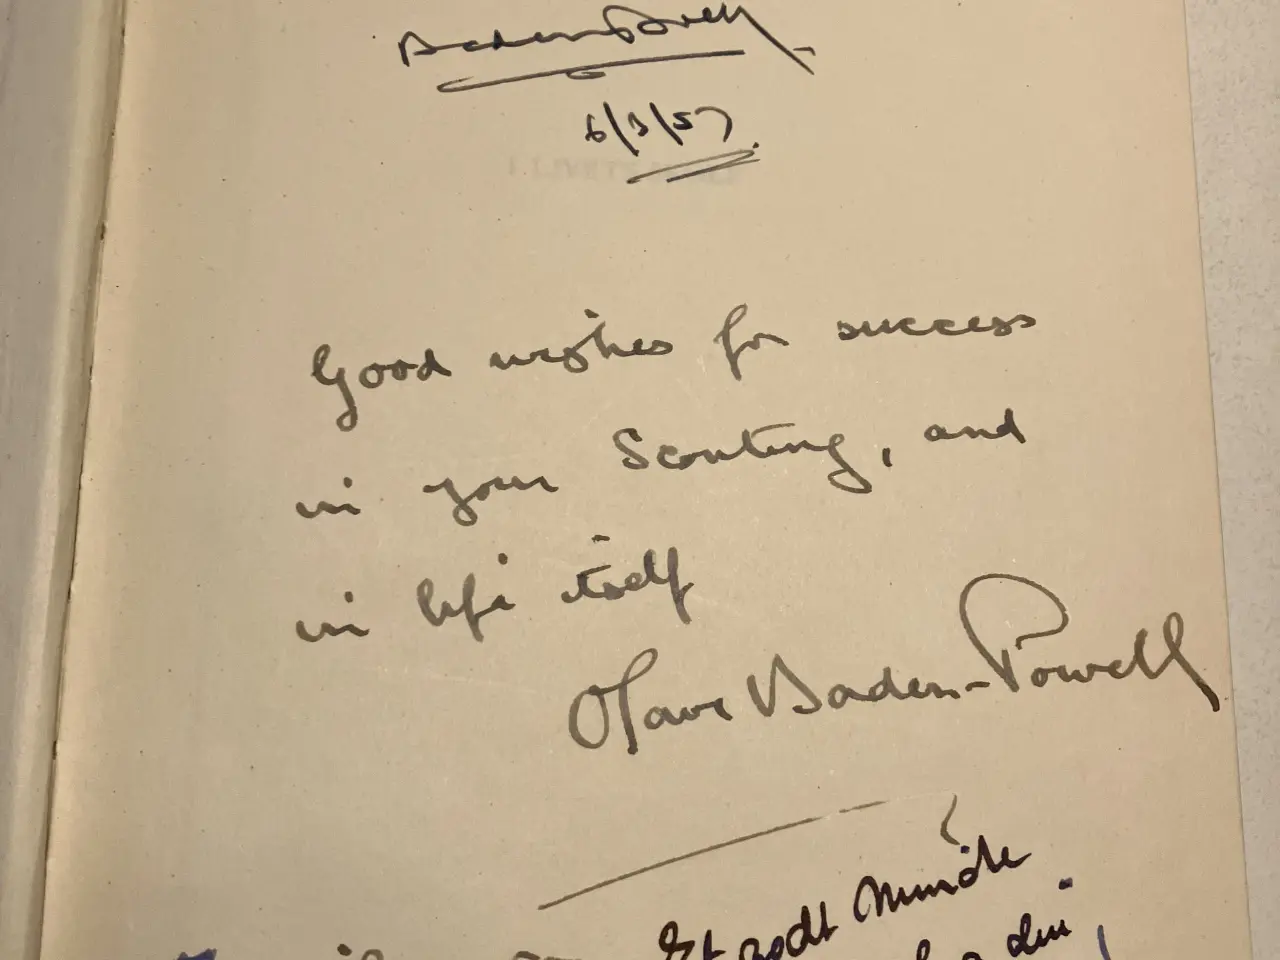 Baden Powell
6/3/57
Good wishes for success
in your Scouting, and
in life itself
Olave Baden-Powell
Et godt Minde
din